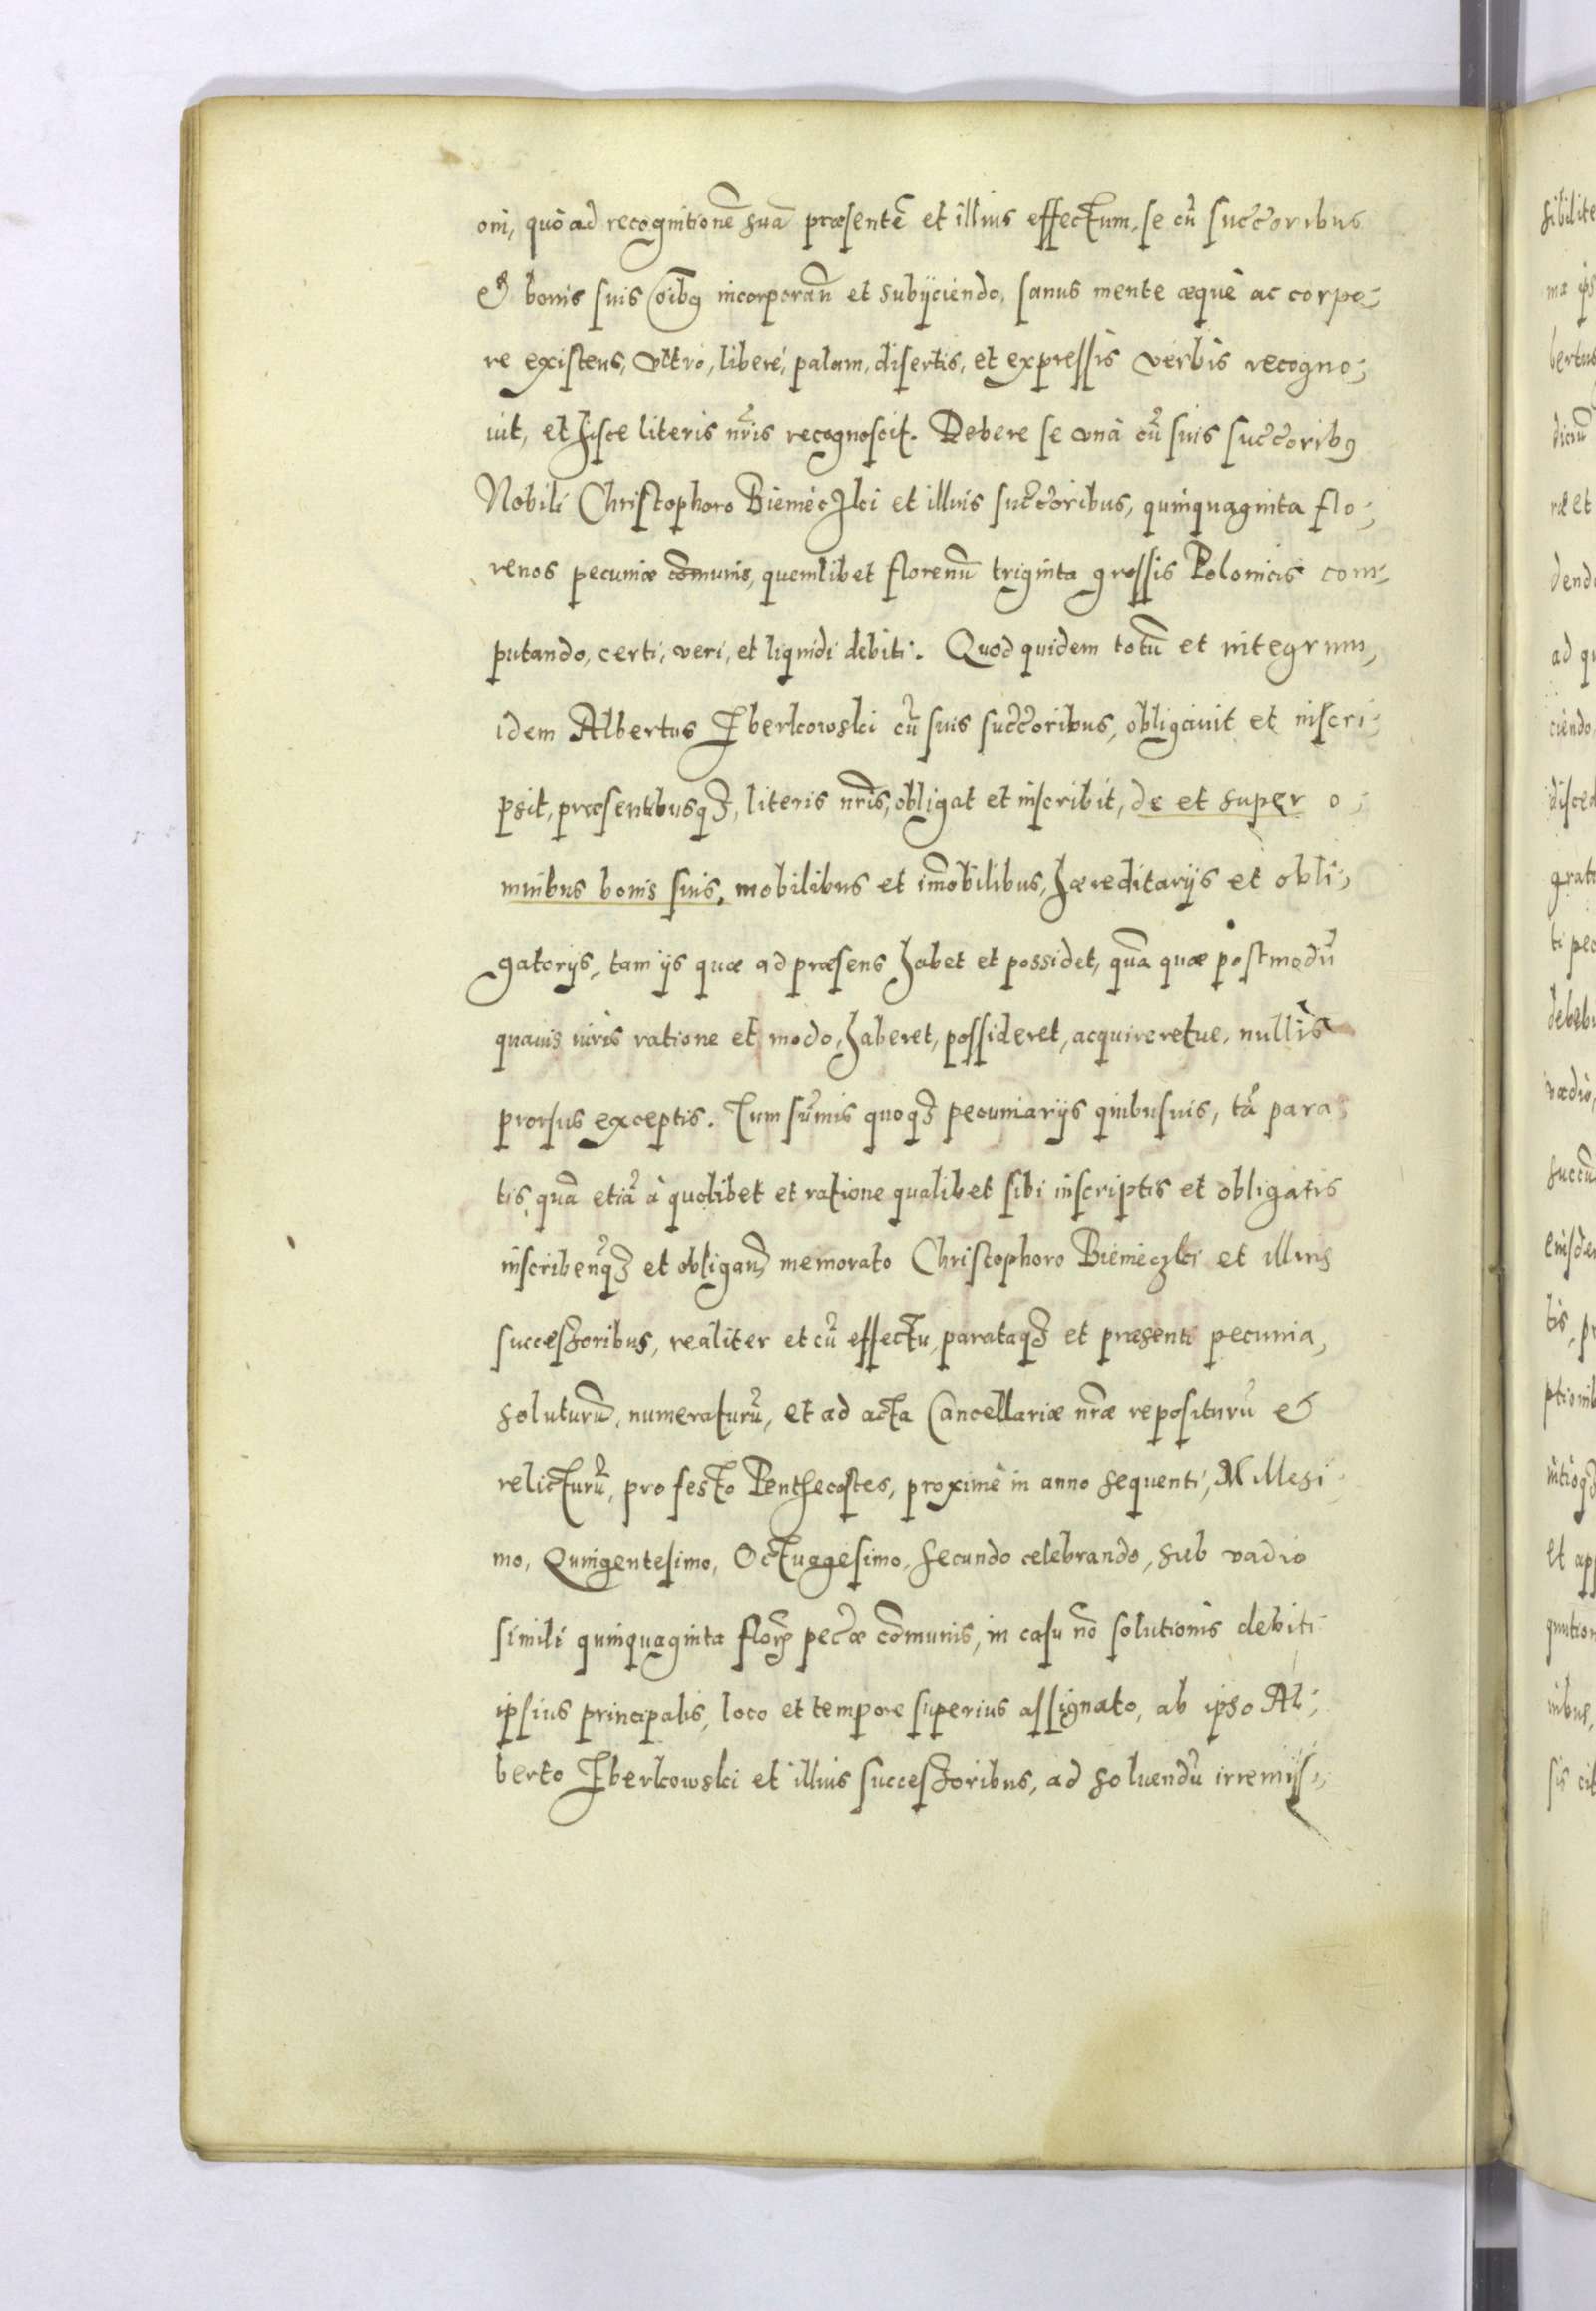 oni, quo ad recognitionē suā præsentē et illius effectum, se cū succ̄oribus
et bonis suis oībꝯ incorporan̄ et subijciendo, sanus mente æquè ac corpo-
re existens, vltrò, liberè, palam, disertis, et expressis verbis recogno-
uit, et hisce literis nr̄is recognoscit. Debere se vnà cū suis succ̄oribꝯ
Nobili Christophoro Bieniéczki et illius succ̄oribus, quinquaginta flo-
renos pecuniæ com̄unis, quemlibet florenū triginta grossis Polonicis com-
putando, certi, veri, et liquidi debiti. Quod quidem totū et integrum,
idem Albertus Zberkowski cū suis succ̄oribus, obligauit et inscri-
psit, præsentibusqꝫ, literis nr̄is, obligat et inscribit, de et super o-
mnibus bonis suis, mobilibus et im̄obilibus, hæreditarijs et obli-
gatorijs, tam ijs quæ ad præsens habet et possidet, quā quæ postmodū
quauis iuris ratione et modo, haberet, possideret, acquireretue, nullis
prorsus exceptis. Tum sum̄is quoqꝫ pecuniarijs quibusuis, tā para-
tis, quā etiā à quolibet et ratione qualibet sibi inscriptis et obligatis
inscriben̄qꝫ et obligan̄ memorato Christophoro Bieniéczki et illius
successoribus, realiter et cū effectu, parataqꝫ et præsenti pecunia,
soluturū, numeraturū, et ad acta Cancellariæ nr̄æ repositurū et
relicturū, pro festo Penthecostes, proximè in anno sequenti, Millesi-
mo, Quingentesimo, Octuagesimo, secundo celebrando, sub vadio
simili quinquaginta florꝝ pec̄æ com̄unis, in casu nō solutionis debiti
ipsius principalis, loco et tempore superius assignato, ab ipso Al-
berto Zberkowski et illius successoribus, ad soluendū irremiss-